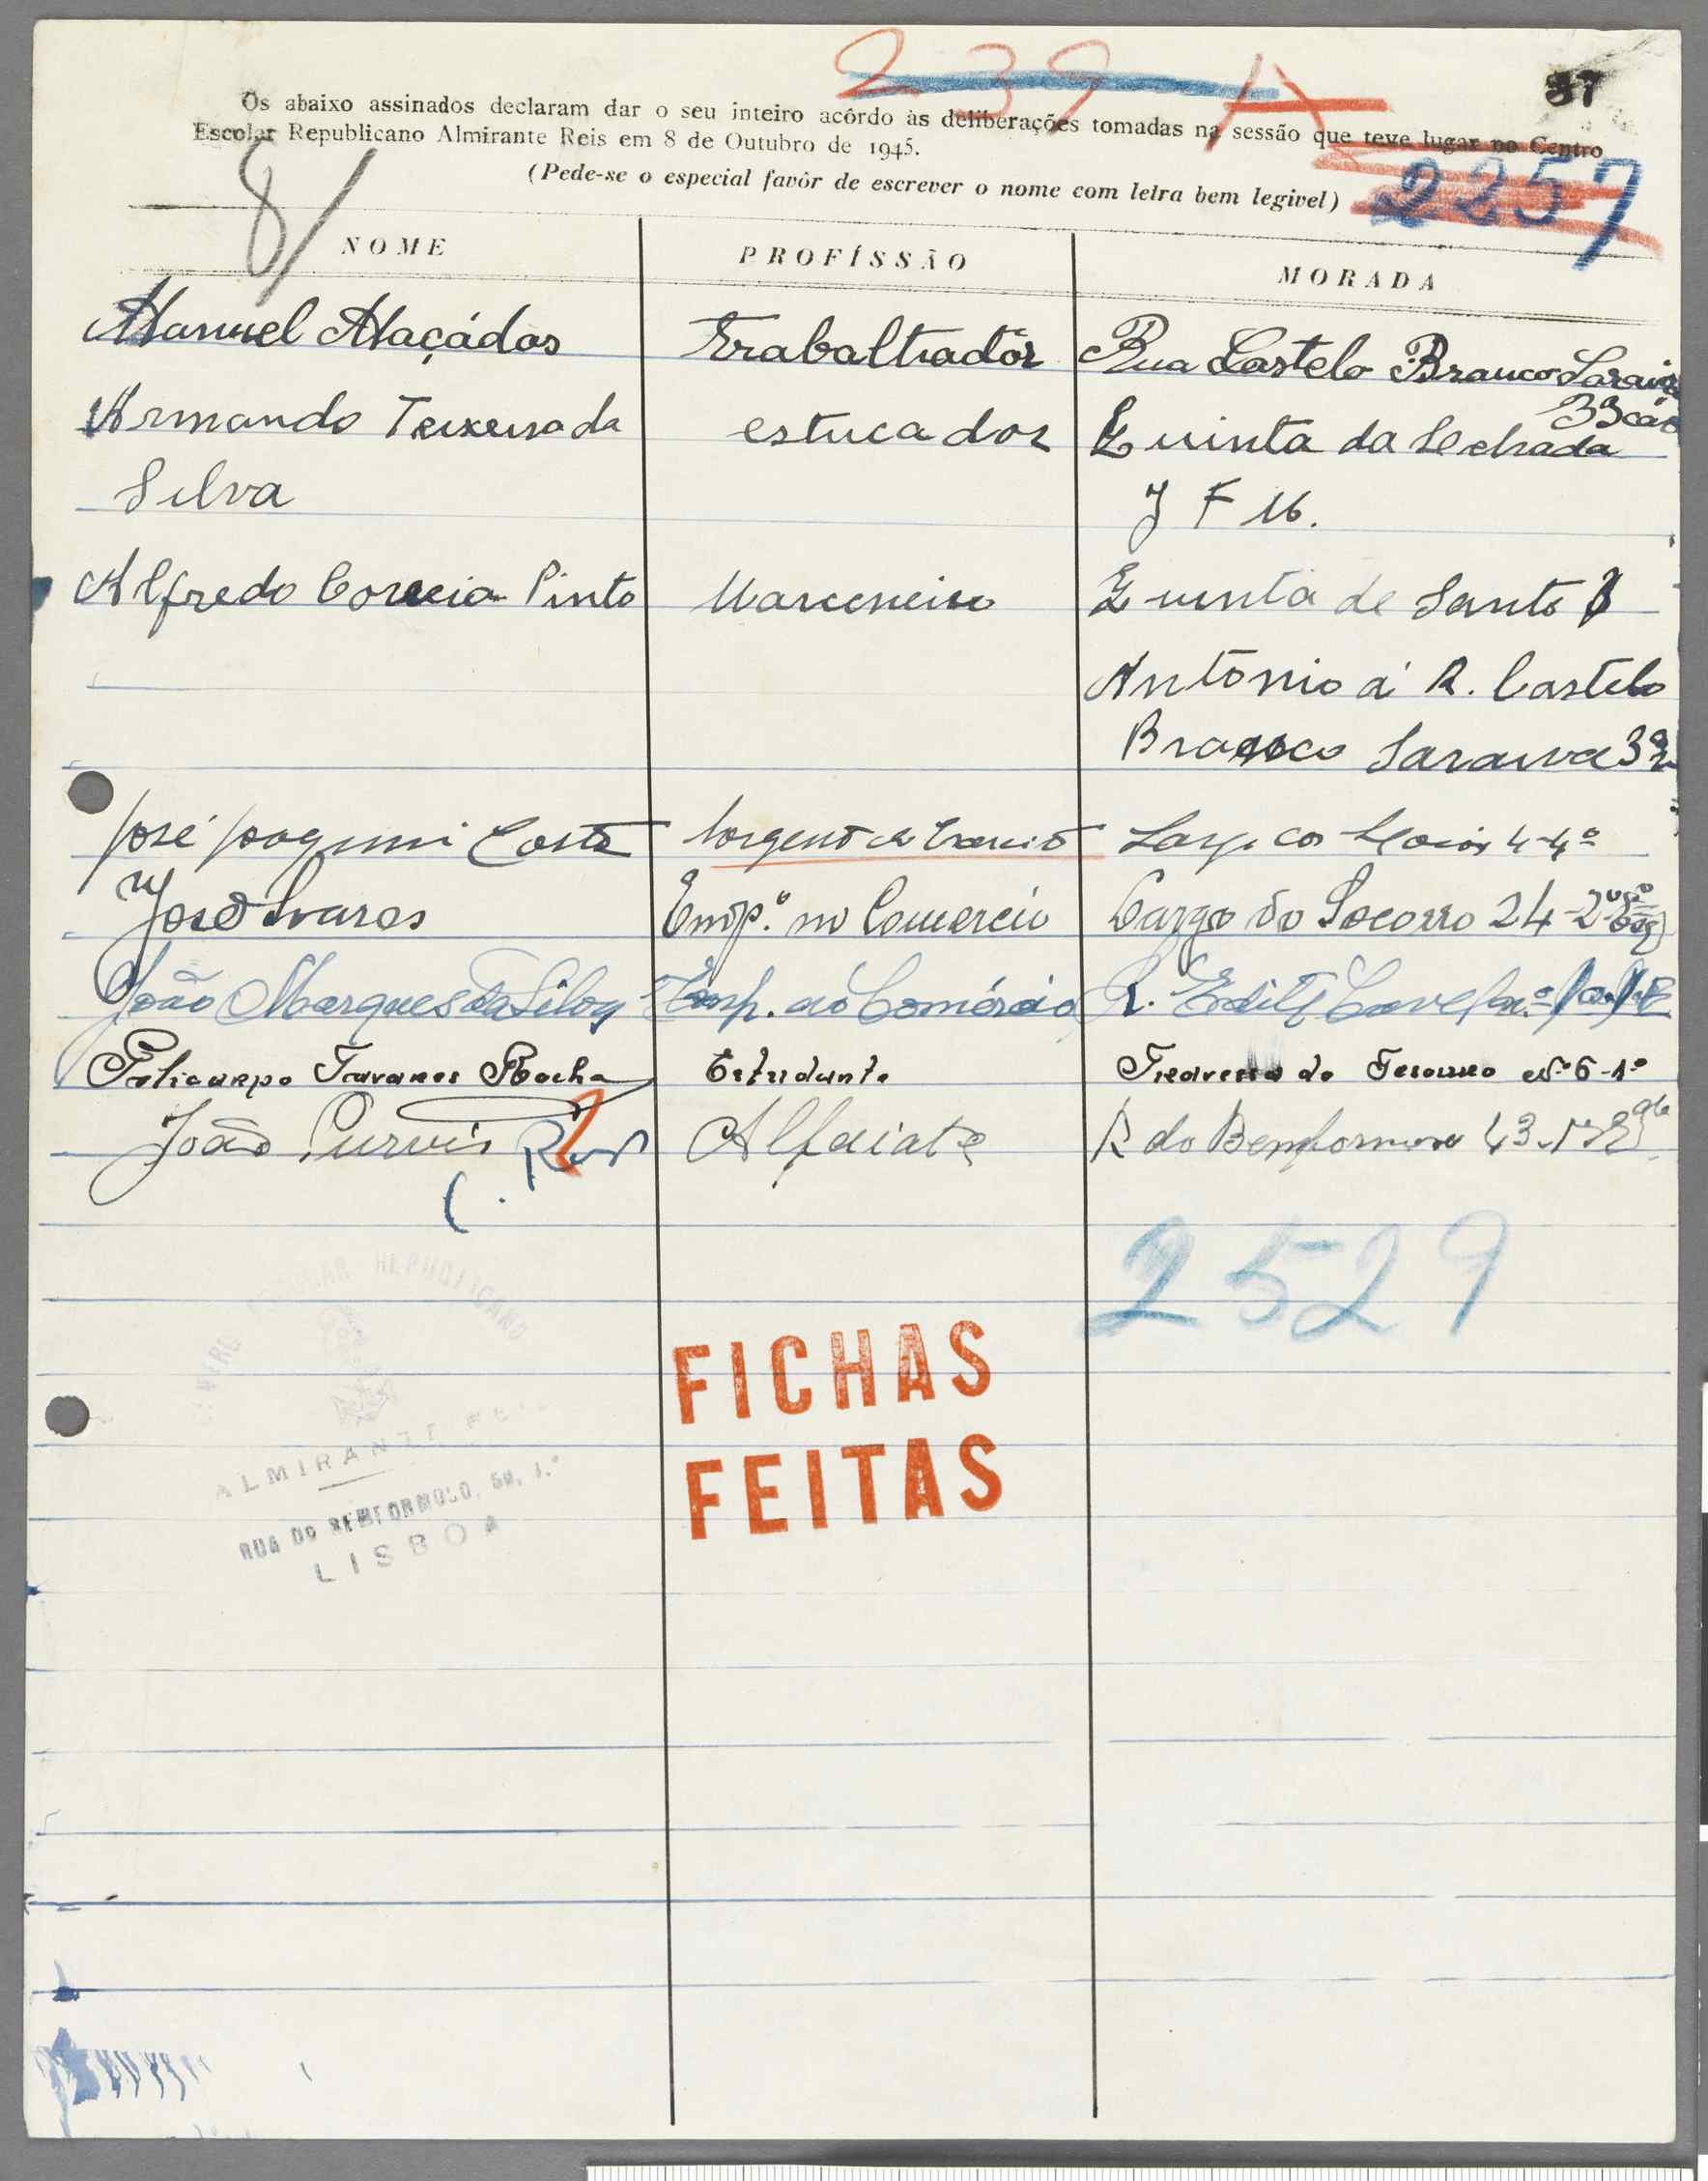 239-A
37
Os abaixo assinados declaram dar o seu inteiro acôrdo às deliberações tomadas na sessão que teve lugar no Centro
Escolar Republicano Almirante Reis em 8 de Outubro de 1945.
(Pede-se o especial favôr de escrever o nome com letra bem legivel)
2257
8/
NOME PROFÍSSÃO MORADA
Manuel Maçádos Trabalhadôr Rua Castelo Branco Saraiva
33
Armando Teixeira da estucador Quinta da
Silva J F 16.
Alfredo Correia Pinto Marceneiro Quinta de Santo
António á R. Castelo
Branco Saraiva 32
José Joaquim Costa Sargento do 4-4º
José Soares Emp.º no Comercio Largo do Socorro 24-2º Esq
João Marques da Silva Emp. do Comércio R. Edith Cavel n.º
Policarpo Tavares Rocha Estudante Travessa do Terreiro Nº 6-1º
João Purvis Alfaiate R do Benformoso 43-1º
2529
CENTRO ESCOLAR REPUBLICANO
ALMIRANTE REIS
RUA DO BEMFORMOSO, 50, 1.º
LISBOA
FICHAS
FEITAS